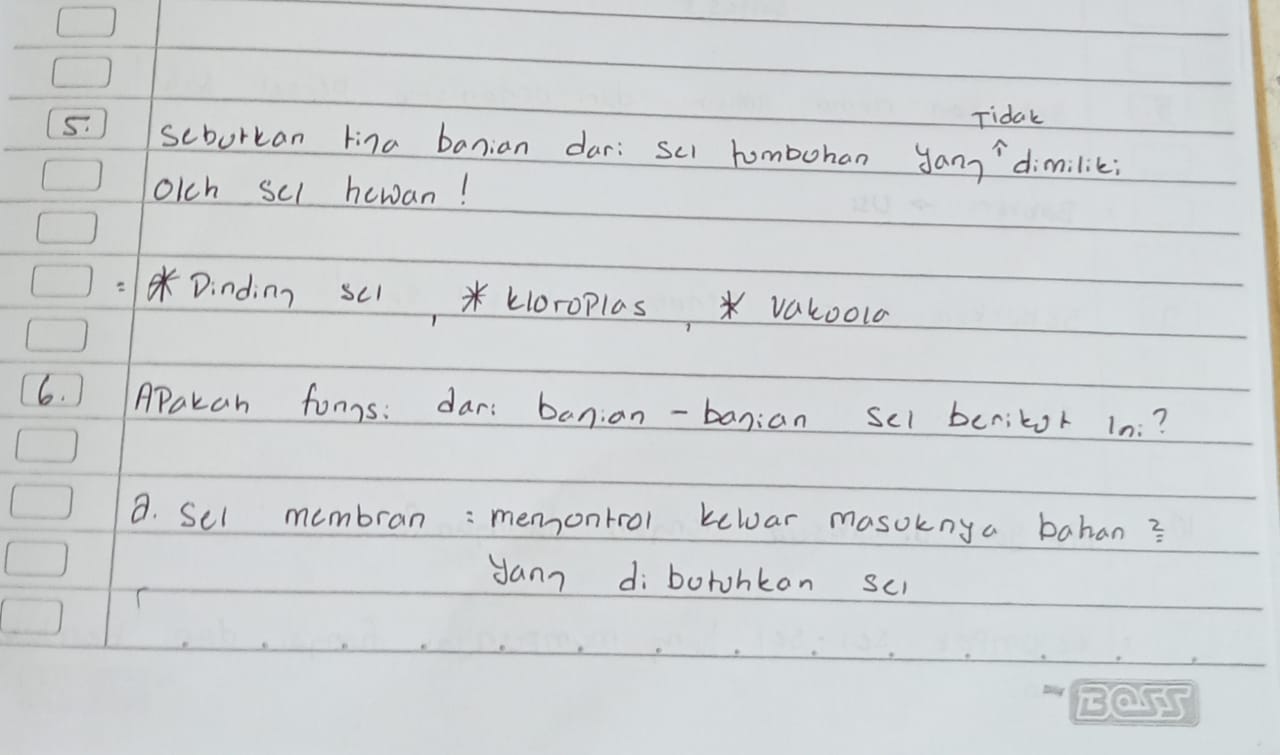 5. Sebutkan tiga bagian dari sel tumbuhan yang Tidak dimiliki
oleh sel hewan !
= * Dinding sel , * kloroplas , * vakuola
6. Apakah fungsi dari bagian - bagian sel berikut ini ?
a. Sel membran : mengontrol keluar masuknya bahan 2
yang di butuhkan sel
BOSS